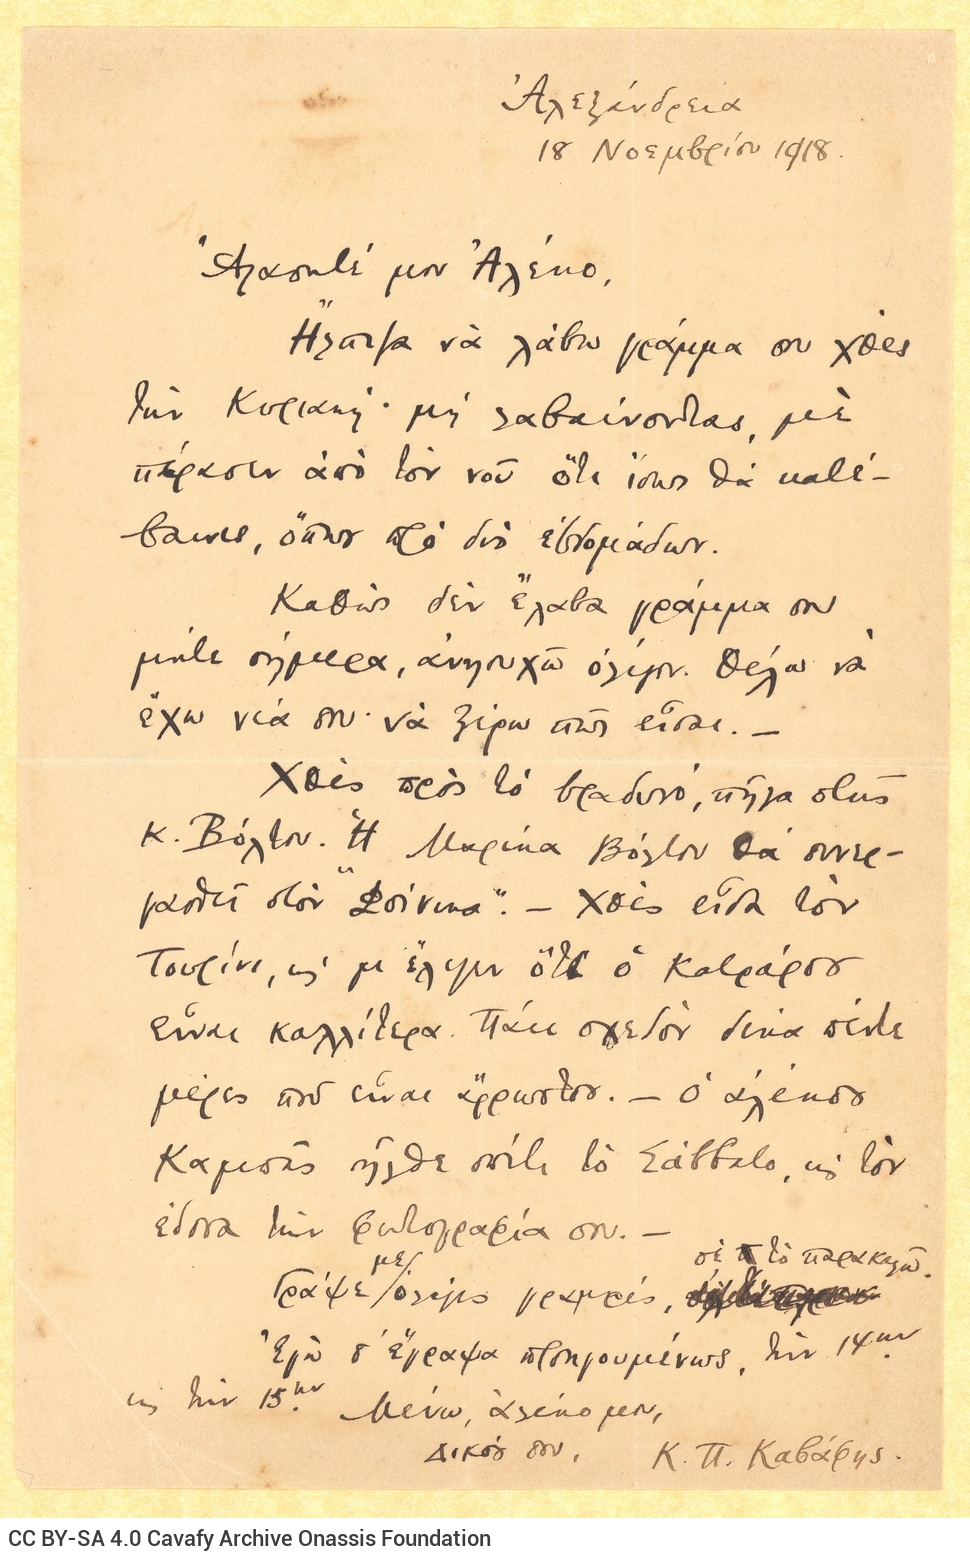 Ἀλεξάνδρεια
18 Νοεμβρίου 1918.
Ἀγαπητέ μου Ἀλέκο,
Ἤλπιζα νὰ λάβω γράμμα σου χθὲς
τὴν Κυριακή· μὴ λαβαίνοντας, μὲ
πέρασεν ἀπὸ τὸν νοῦ ὅτι ἴσως θὰ κατέ-
βαινες, ὅπως πρὸ δυὸ ἑβδομάδων.
Καθὼς δὲν ἔλαβα γράμμα σου
μήτε σήμερα, ἀνησυχῶ ὀλίγον. Θέλω νὰ
ἔχω νέα σου· νὰ ξέρω πῶς εἶσαι. —
Χθὲς πρὸς τὸ βραδυνό, πῆγα στῆς
κ. Βόλτου. Ἡ Μαρίκα Βόλτου θὰ συνερ-
γασθεῖ στὸν "Φοίνικα". — Χθὲς εἶδα τὸν
Τουρίνι, κ μὲ ἔλεγεν ὅτι ὁ
εἶναι καλλίτερα. Πάει σχεδὸν δέκα πέντε
μέρες ποῦ εἶναι ἄρρωστος. — Ὁ Ἀλέκος
ἦλθε σπίτι τὸ Σάββατο, κ τὸν
ἔδοσα τὴν φωτογραφία σου. —
Γράψε με ὀλίγες γραμμές, σὲ τὸ παρακαλῶ.
Ἐγὼ σ' ἔγραψα προηγουμένως, τὴν 14ην
κ τὴν 15ην. Μένω, Ἀλέκο μου,
Δικός σου,
Κ. Π. Καβάφης.
CC BY-SA 4.0 Cavafy Archive Onassis Foundation